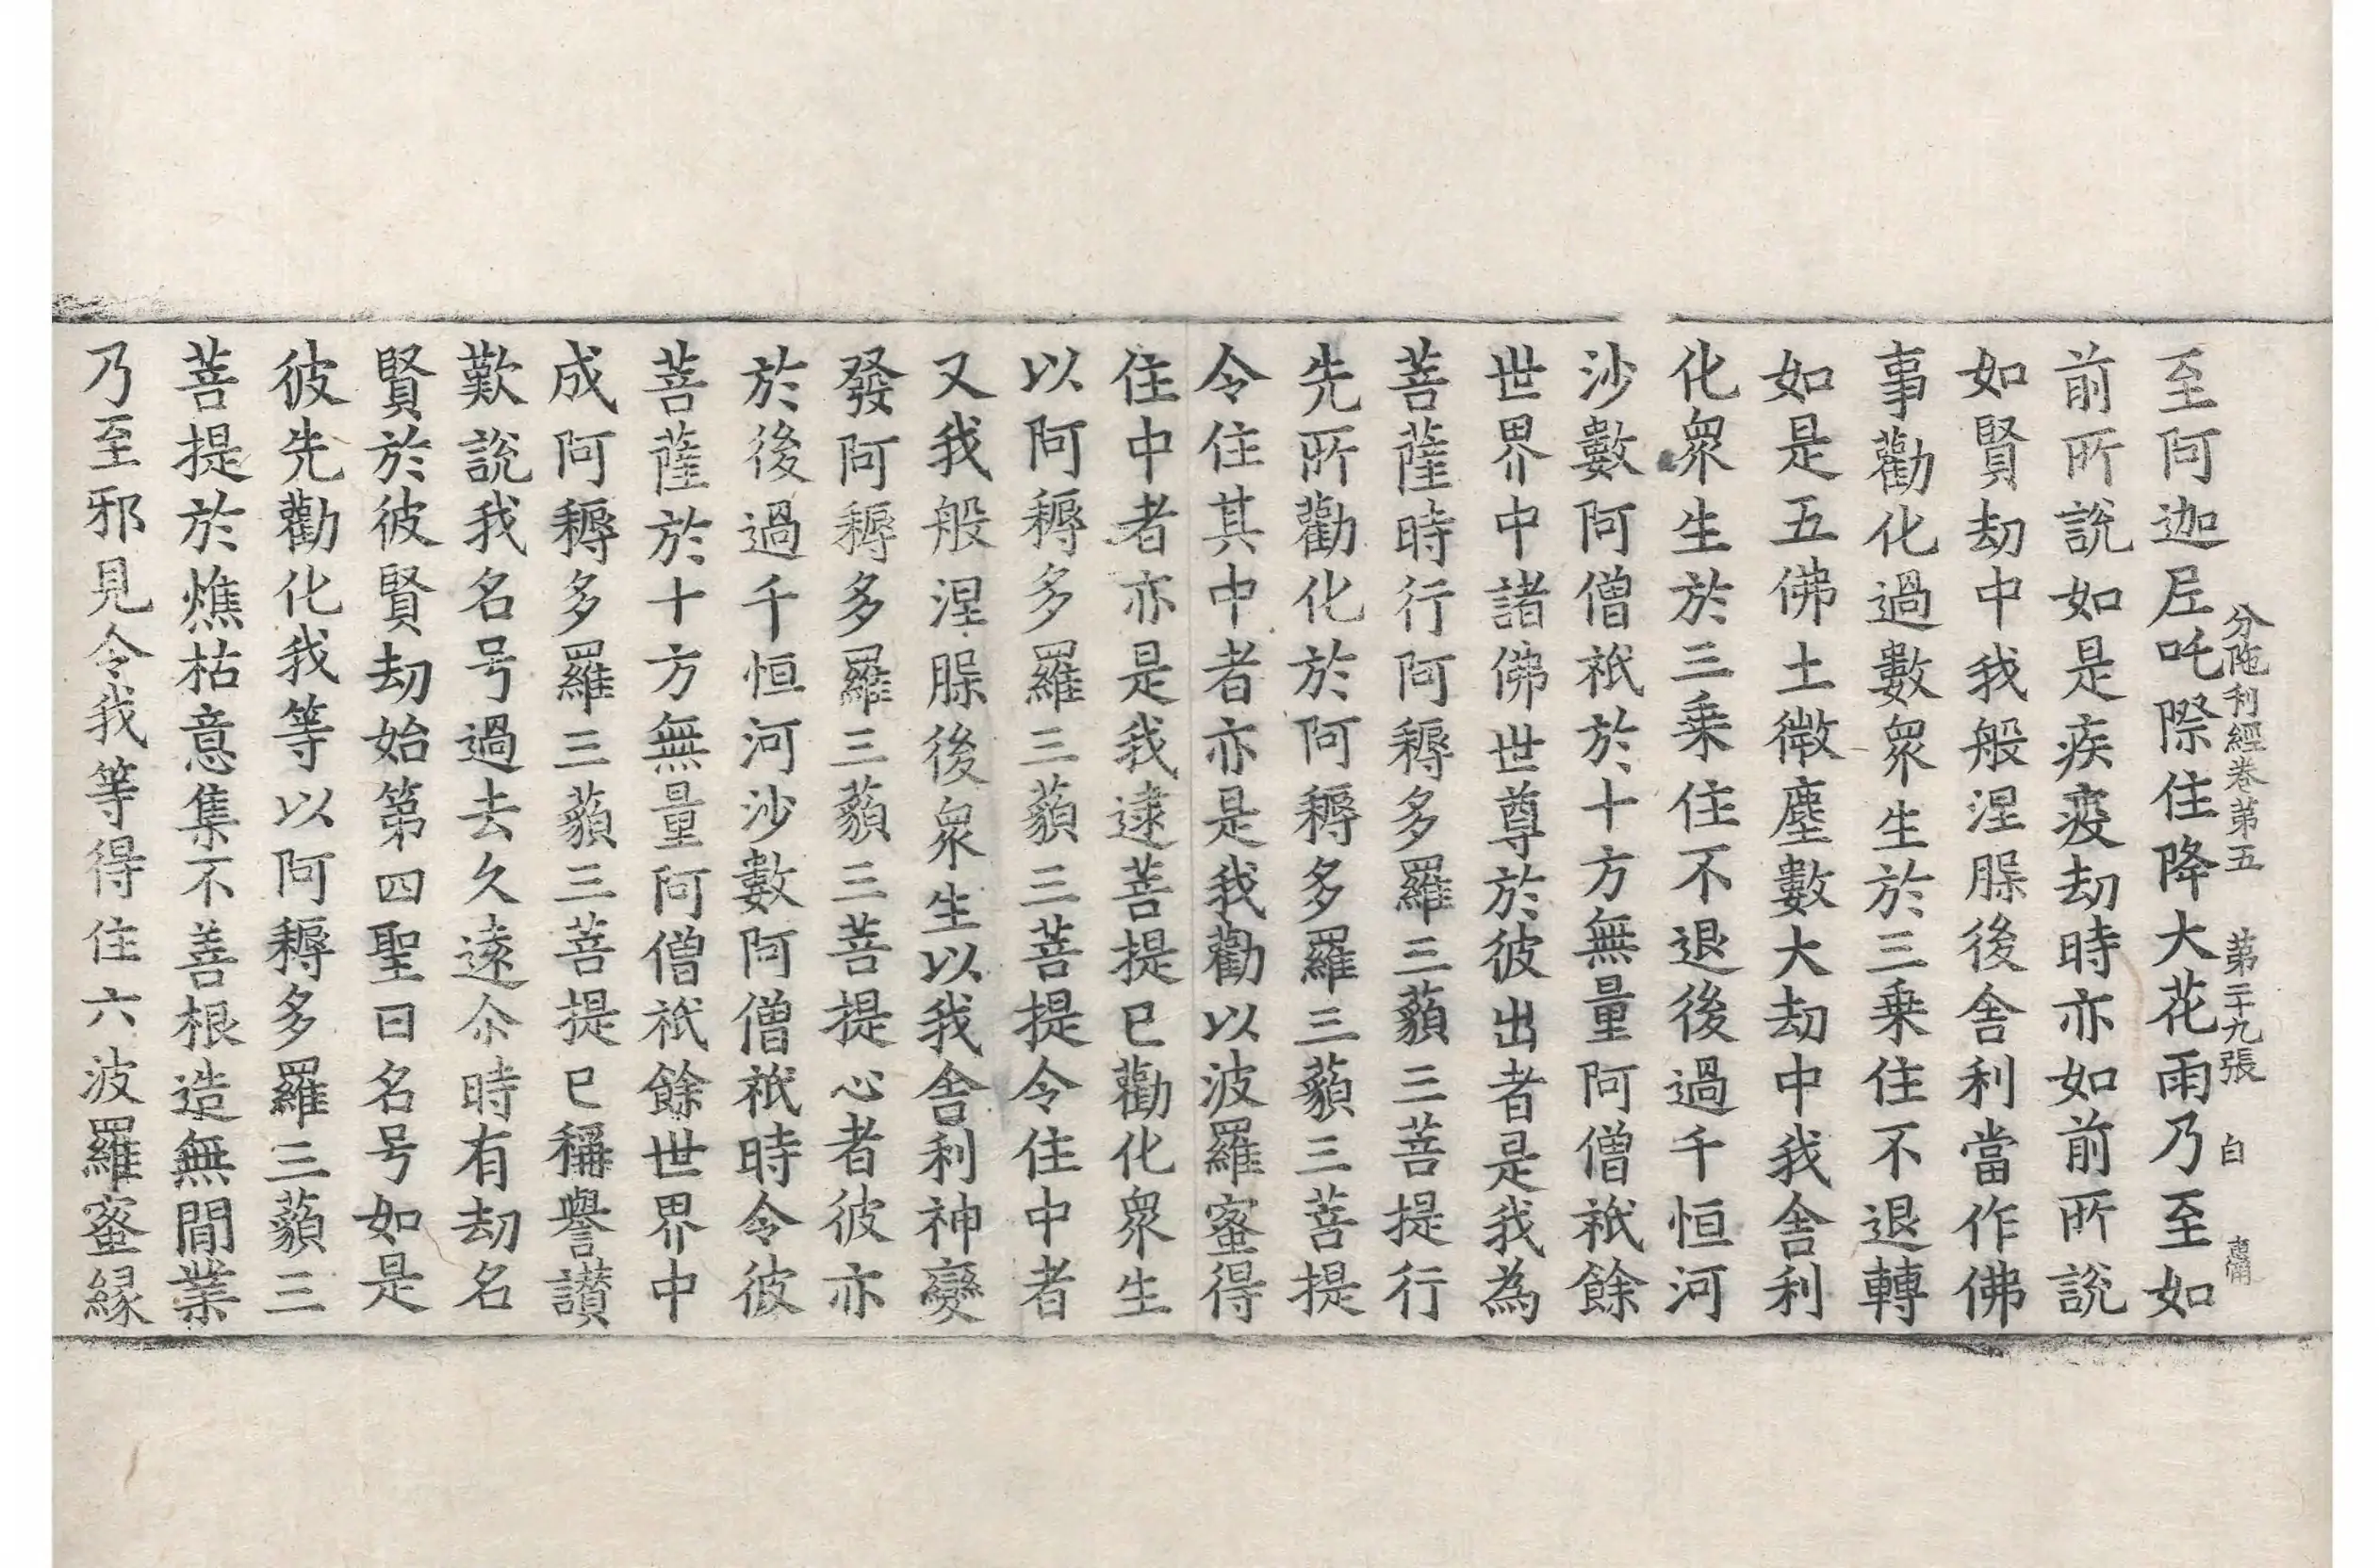 分陁利經卷第五 第二十九張 白
至阿迦尼吒際住降大花雨乃至如
前所說如是疾疫劫時亦如前所說
如賢劫中我般涅䏶後舍利當作佛
事勸化過數衆生於三乗住不退轉
如是五佛土微塵數大劫中我舍利
化衆生於三乗住不退後過千恒河
沙數阿僧祇於十方無量阿僧祇餘
世界中諸佛世尊於彼出者是我為
菩薩時行阿耨多羅三藐三菩提行
先所勸化於阿耨多羅三藐三菩提
令住其中者亦是我勸以波羅蜜得
住中者亦是我逮菩提已勸化衆生
以阿耨多羅三藐三菩提令住中者
又我般涅䏶後衆生以我舍利神變
發阿耨多羅三藐三菩提心者彼亦
於後過千恒河沙數阿僧祇時令彼
菩薩於十方無量阿僧祇餘世界中
成阿耨多羅三藐三菩提已稱譽讃
歎說我名号過去久遠尒時有劫名
賢於彼賢劫始第四聖日名号如是
彼先勸化我等以阿耨多羅三藐三
菩提於燋枯意集不善根造無間業
乃至邪見令我等得住六波羅蜜縁